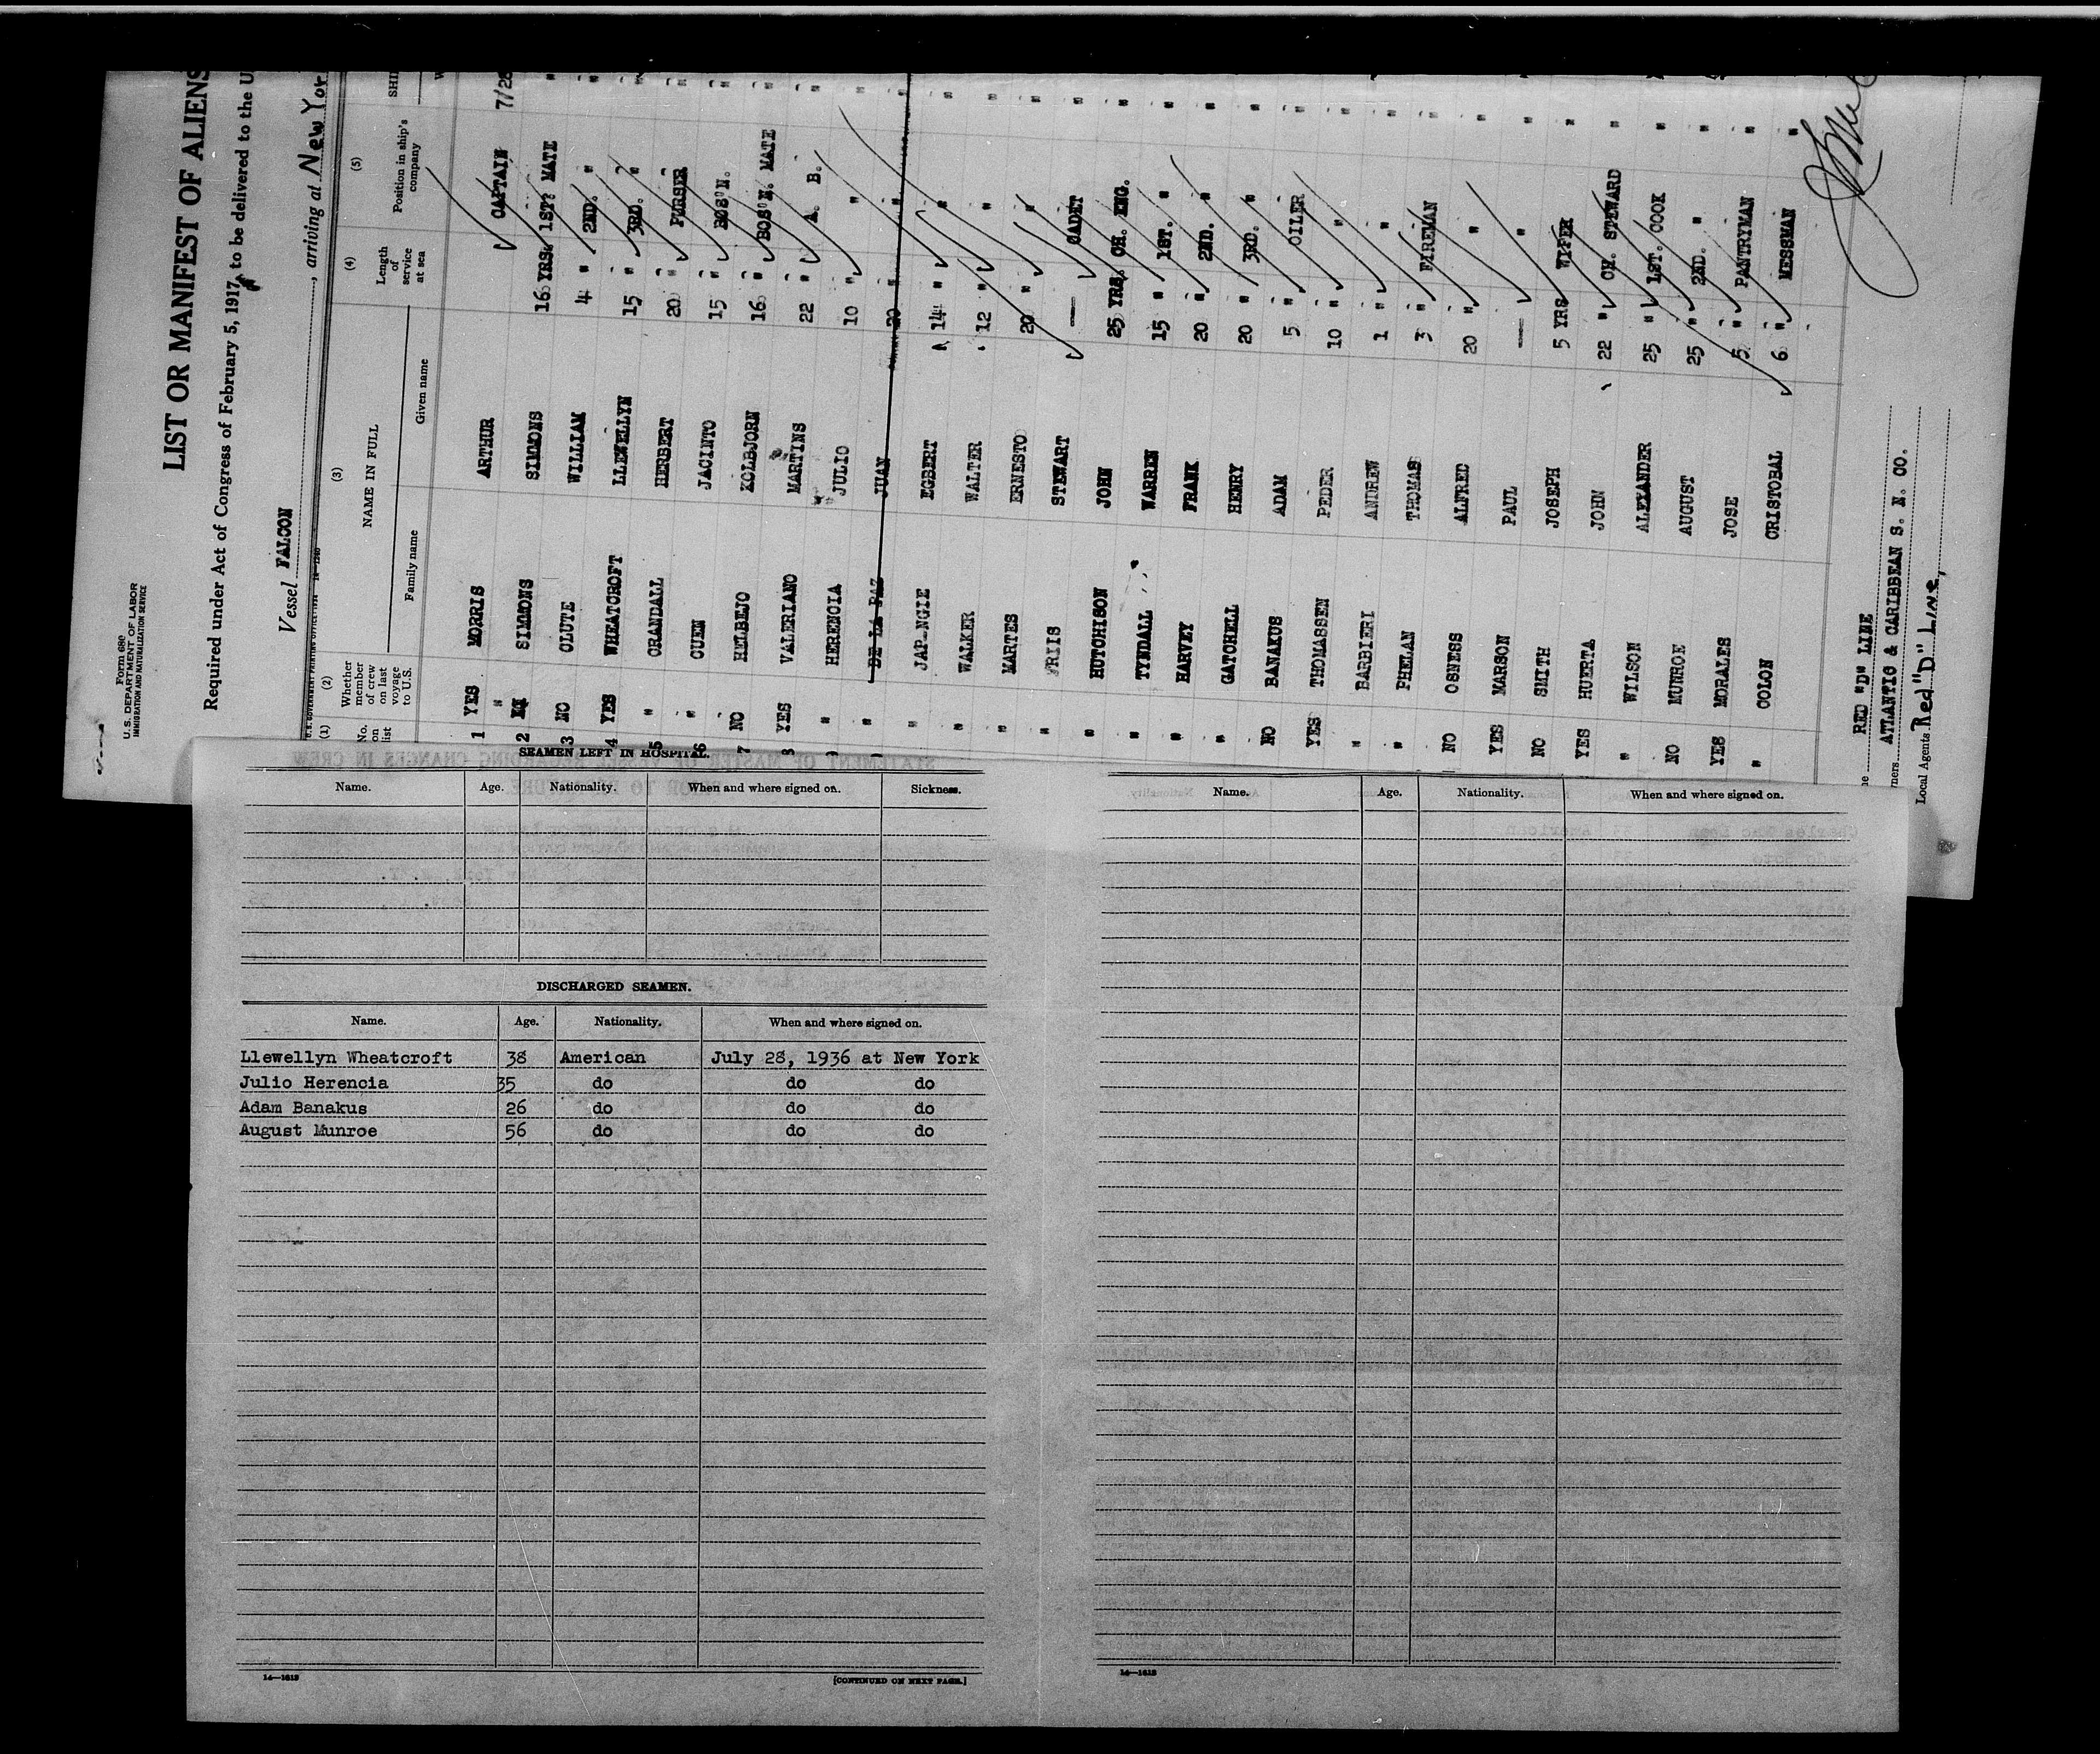 Form 680
U. S. DEPARTMENT OF LABOR
IMMIGRATION AND NATURALIZATION SERVICE
LIST OR MANIFEST OF ALIENS
Required under Act of Congress of February 5, 1917, to be delivered to the U
Vessel FALCON, arriving at New Yor
U. S. GOVERNMENT PRINTING OFFICE
(1) (2) (3) (4) (5)
No. on list Whether member of crew on last voyage to U.S. NAME IN FULL Length of service at sea Position in ship's company SHI
Family name Given name W
1 YES MORRIS ARTHUR CAPTAIN 7/28
2 SIMMONS SIMMONS 16 YRS. 1ST? MATE "
3 NO CLUTE WILLIAM 4 " 2ND. " "
4 YES WHEATCROFT LLEWELLYN 15 " 3RD. " "
5 " CRANDALL HERBERT 20 " PURSER "
6 " CUEN JACINTO 15 " BOS'N. "
7 NO HELBEJO KOLBJORN 16 " BOS'N. MATE "
8 YES VALERIANO MARTINS 22 " A. B. "
9 " HERENCIA JULIO 10 " "
" DE LA PAZ JUAN 20 " " "
" JAP-NGIE EGBERT 14 " " "
" WALKER WALTER 12 " " "
" MARTES ERNESTO 20 " " "
" FRIIS STEWART — CADET "
" HUTCHISON JOHN 25 YRS. CH. ENG. "
" TYNDALL WARREN 15 " 1ST. " "
" HARVEY FRANK 20 " 2ND. " "
" GATCHELL HENRY 20 " 3RD. " "
NO BANAKUS ADAM 5 " OILER "
YES THOMASSEN PEDER 10 " " "
" BARBIERI ANDREW 1 " " "
" PHELAN THOMAS 3 " FIREMAN "
NO OSNESS ALFRED 20 " " "
YES MARSON PAUL — " "
NO SMITH JOSEPH 5 YRS WIPER "
YES HUERTA JOHN 22 " CH. STEWARD "
" WILSON ALEXANDER 25 " 1ST. COOK "
NO MUNROE AUGUST 25 " 2ND. " "
YES MORALES JOSE 5 " PANTRYMAN "
" COLON CRISTOBAL 6 " MESSMAN "
RED "D" LINE
ATLANTIC & CARIBBEAN S. N. CO.
Local Agents Red "D" Line,
SEAMEN LEFT IN HOSPITAL.
Name. Age. Nationality. When and where signed on. Sickness.
DISCHARGED SEAMEN.
Name. Age. Nationality. When and where signed on.
Llewellyn Wheatcroft 38 American July 28, 1936 at New York
Julio Herencia 35 do do do
Adam Banakus 26 do do do
August Munroe 56 do do do
14—1613
[CONTINUED ON NEXT PAGE.]
Name. Age. Nationality. When and where signed on.
14—1613